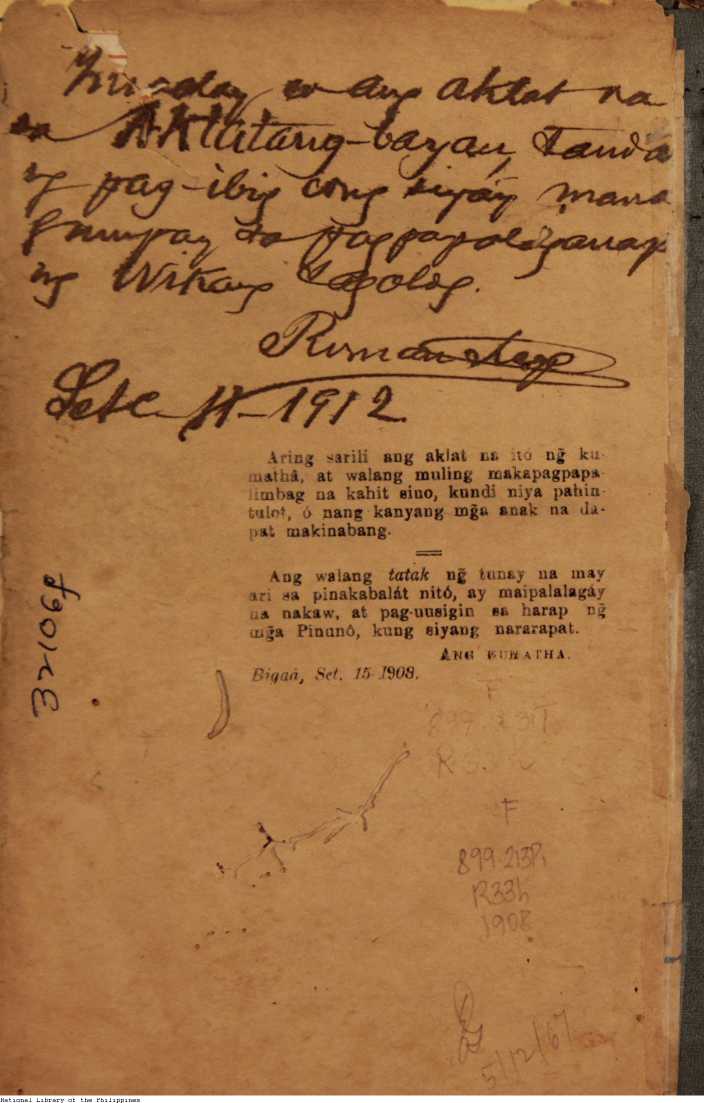 ang aklat na
sa Aklatang-bayan, tanda
ng pag-ibig cong siyáy mana
sa pagpapalaganap
ng Wikang Tagalog.
Roman Reyes
Sete 11-1912
Aring sarili ang aklat na itó ng̃ ku-
mathâ, at walang muling makapagpapa-
limbag na kahit sino, kundi niya pahin-
tulot, ó nang kanyang mg̃a anak na da-
pat makinabang.
Ang walang tatak ng̃ tunay na may
ari sa pinakabalát nitó, ay maipalalagáy
na nakaw, at pag-uusigin sa harap ng̃
mg̃a Pinunò, kung siyang nararapat.
ANG KUMATHA.
Bigaá, Set. 15-1908.
32106f
F
F
899.213R
R33h
1908
5/12/67
National Library of the Philippines